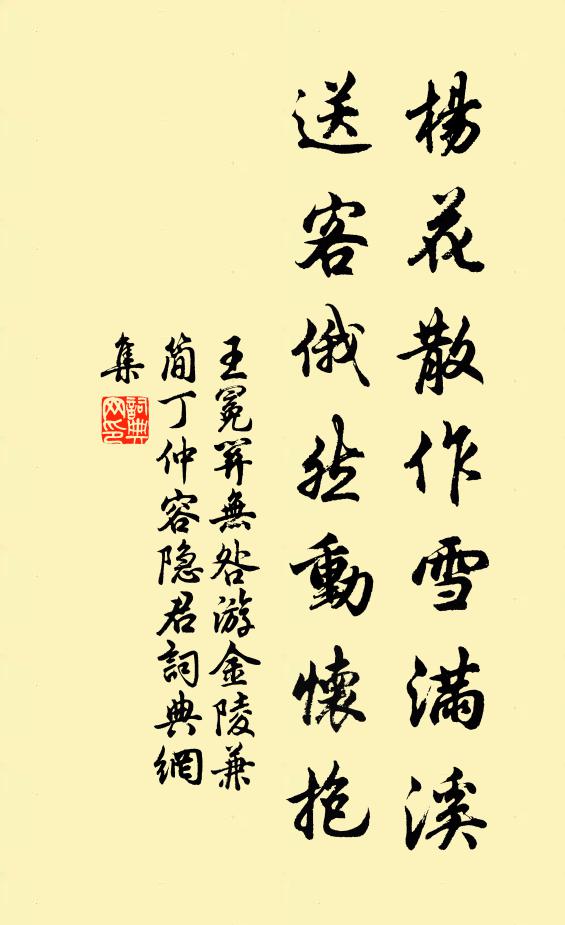 楊花散作雪滿溪
送客俄然動懷抱
王冕無咎游金陵兼
简丁仲容隐君詞典網
集
詞典
网印